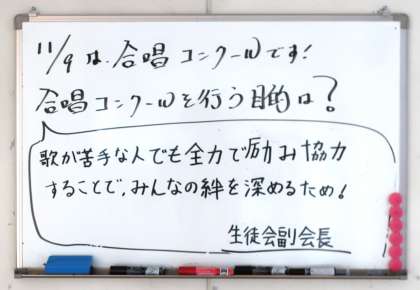 11/9は、合唱コンクールです!
合唱コンクールを行う目的は?
歌が苦手な人でも全力で励み協力
することで、みんなの絆を深めるため!
生徒会副会長